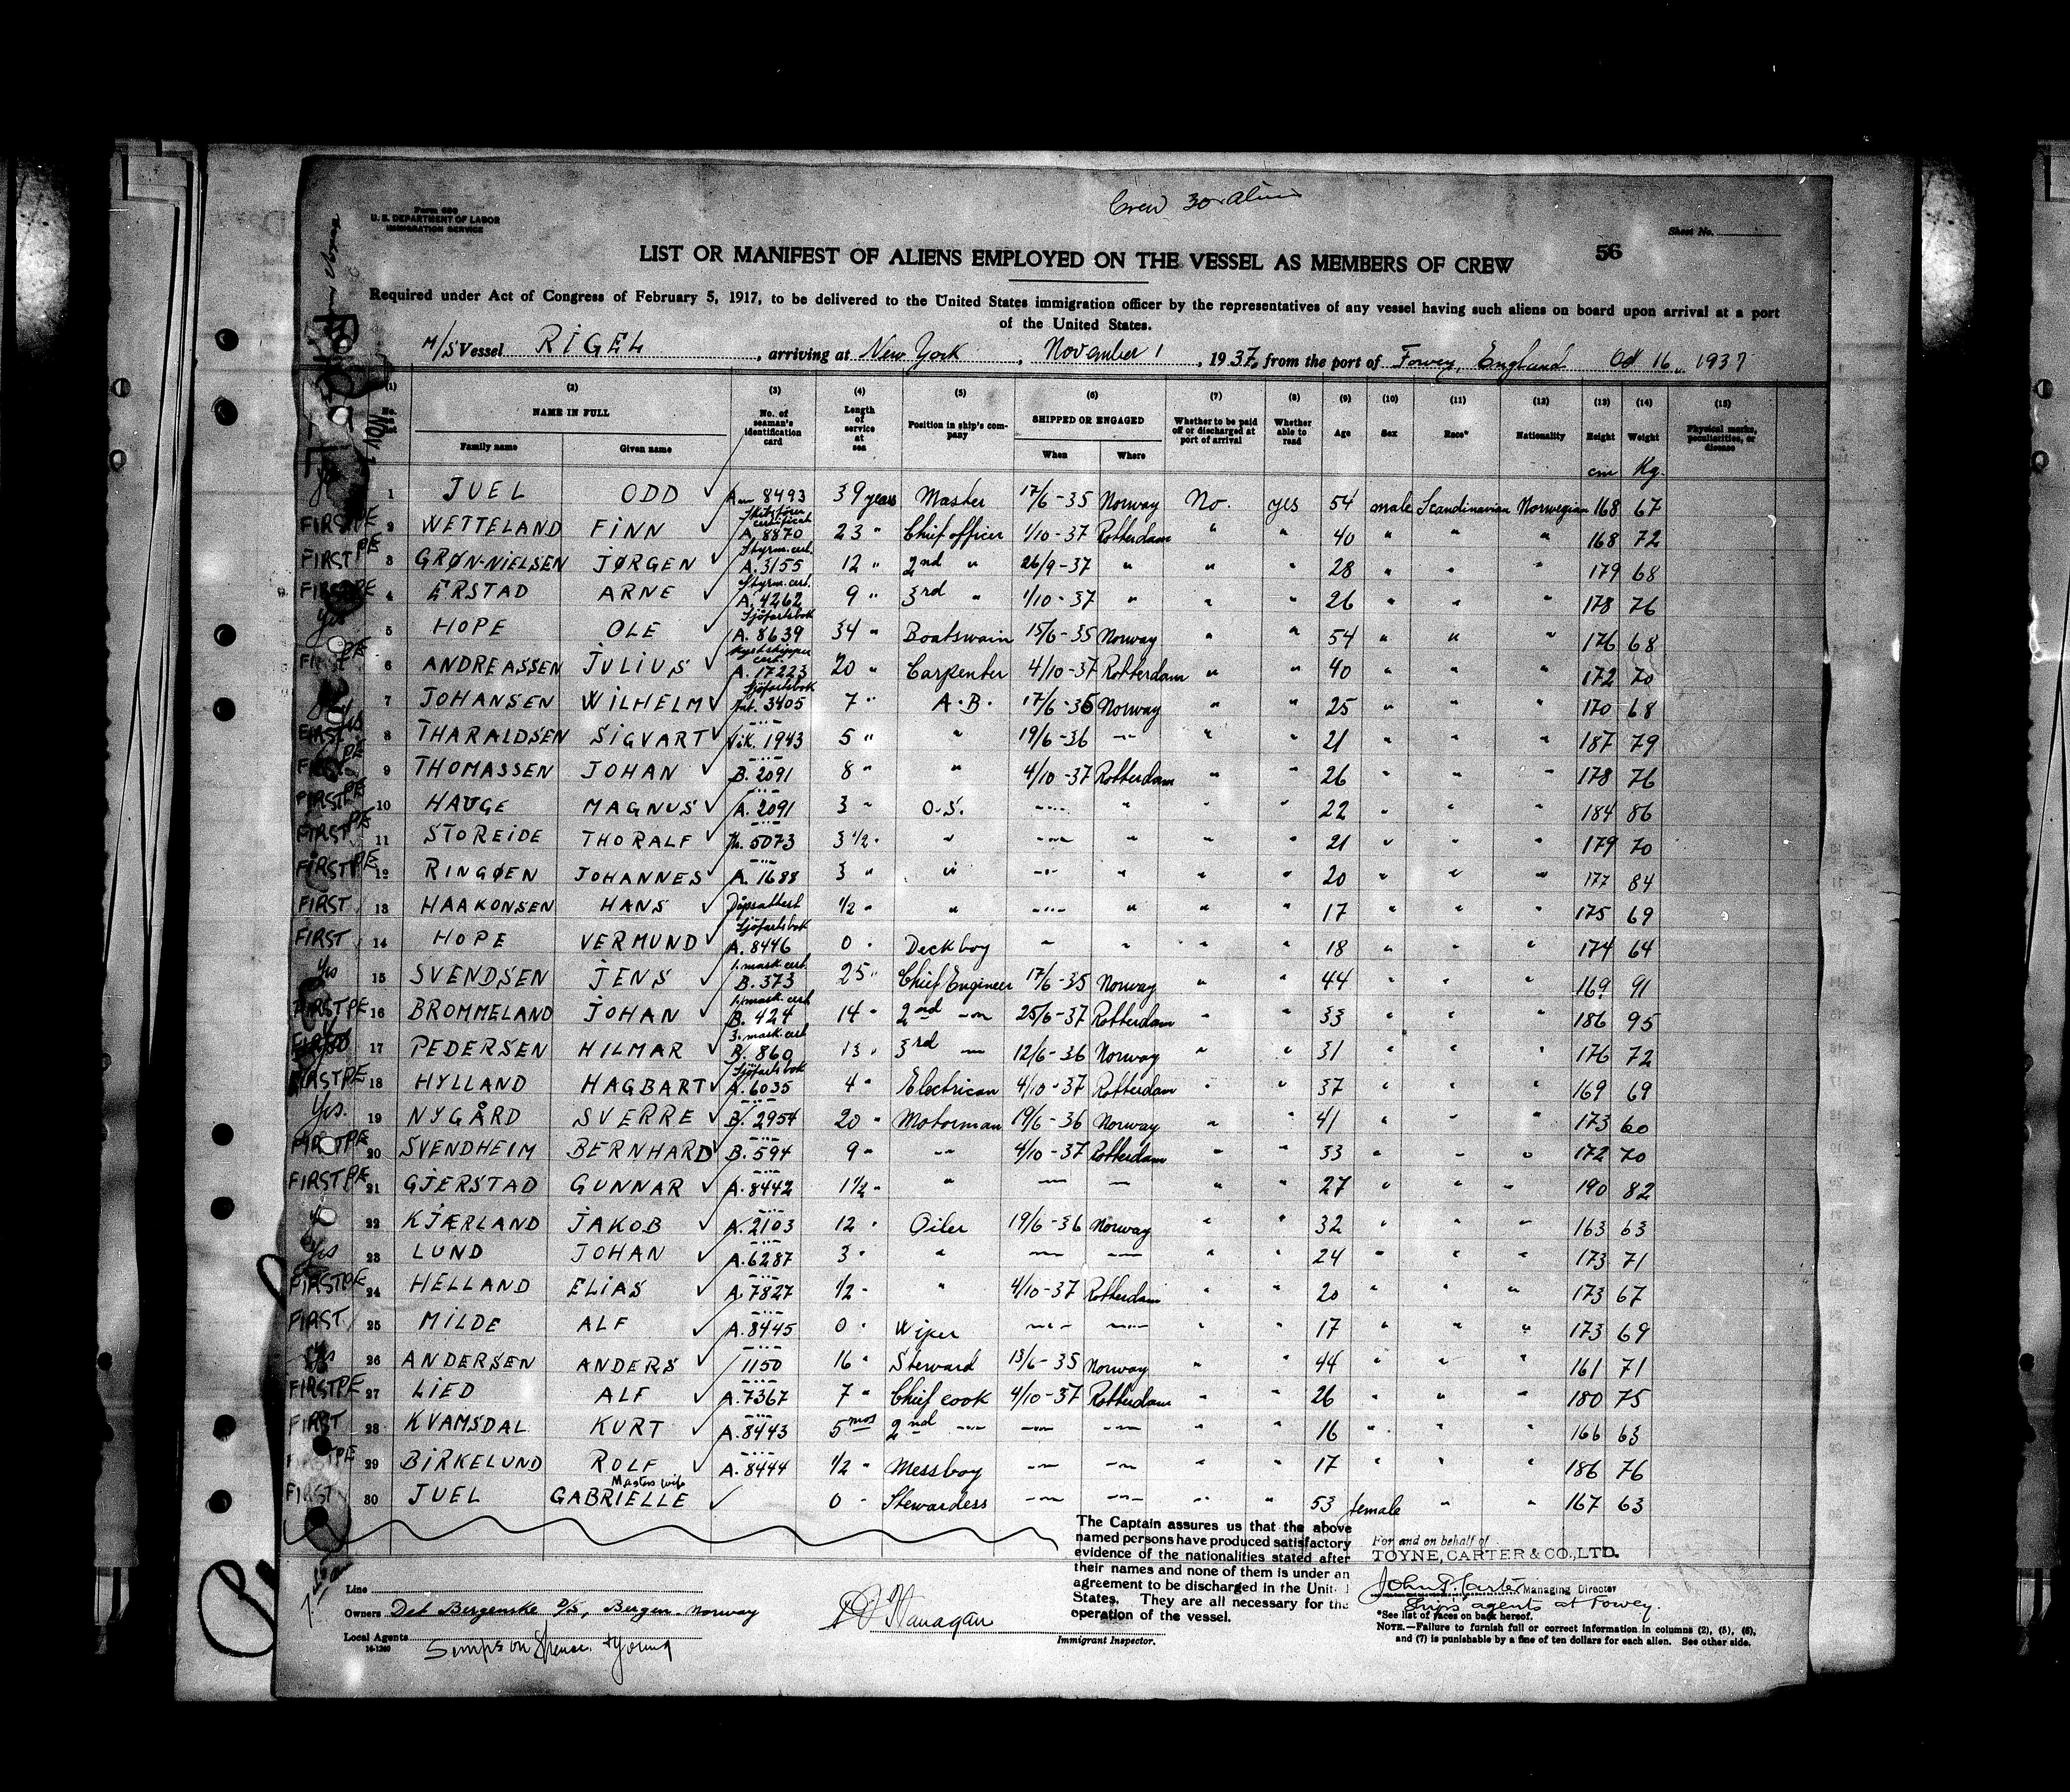 Crew 30 Aliens
Form 680
U. S. DEPARTMENT OF LABOR
IMMIGRATION SERVICE
Sheet No.
LIST OR MANIFEST OF ALIENS EMPLOYED ON THE VESSEL AS MEMBERS OF CREW 56
Required under Act of Congress of February 5, 1917, to be delivered to the United States immigration officer by the representatives of any vessel having such aliens on board upon arrival at a port
of the United States.
M/S Vessel RIGEL, arriving at New York, November 1, 1937, from the port of Fowey, England Oct 16, 1937
(1) (2) (3) (4) (5) (6) (7) (8) (9) (10) (11) (12) (13) (14) (15)
No. NAME IN FULL No. of seaman's identification card Length of service at sea Position in ship's company SHIPPED OR ENGAGED Whether to be paid off or discharged at port of arrival Whether able to read Age Sex Race* Nationality Height Weight Physical marks, peculiarities, or disease
Family name Given name When Where
cm Kg.
yes 1 JUEL ODD ✓ 8493 39 years Master 17/6-35 Norway No. yes 54 male Scandinavian Norwegian 168 67
FIRST PE 2 WETTELAND FINN ✓ A 8870 23 " Chief officer 1/10-37 Rotterdam " " 40 " " " 168 72
FIRST PE 3 GRØN-NIELSEN JØRGEN ✓ Styrm. cert. A.3155 12 " 2nd " 26/9-37 " " " 28 " " " 179 68
FIRST PE 4 ERSTAD ARNE ✓ Styrm. cert. A.4262 9 " 3rd " 1/10-37 " " " 26 " " " 178 76
Yes 5 HOPE OLE ✓ Sjöfartsbok A.8639 34 " Boatswain 15/6-35 Norway " " 54 " " " 176 68
FIRST PE 6 ANDREASSEN JULIUS ✓ Kystskipper cert. A.17223 20 " Carpenter 4/10-37 Rotterdam " " 40 " " " 172 70
7 JOHANSEN WILHELM ✓ Sjöfartsbok 3405 7 " A.B. 17/6-36 Norway " " 25 " " " 170 68
FIRST 8 THARALDSEN SIGVART ✓ Vik. 1943 5 " " 19/6-36 -"- " " 21 " " " 187 79
FIRST PE 9 THOMASSEN JOHAN ✓ B.2091 8 " " 4/10-37 Rotterdam " " 26 " " " 178 76
FIRST PE 10 HAUGE MAGNUS ✓ A.2091 3 " O.S. -"- " " " 22 " " " 184 86
FIRST PE 11 STOREIDE THORALF ✓ 5073 3 1/2 " " -"- " " " 21 " " " 179 70
FIRST PE 12 RINGØEN JOHANNES ✓ A.1688 3 " " -"- " " " 20 " " " 177 84
FIRST 13 HAAKONSEN HANS ✓ Döpsattest 1/2 " " -"- " " " 17 " " " 175 69
FIRST 14 HOPE VERMUND ✓ Sjöfartsbok A.8446 0 " Deckboy " " " " 18 " " " 174 64
Yes 15 SVENDSEN JENS ✓ 1. mask. cert. B.373 25 " Chief Engineer 17/6-35 Norway " " 44 " " " 169 91
FIRST PE 16 BROMMELAND JOHAN ✓ 1. mask. cert B.424 14 " 2nd -"- 25/6-37 Rotterdam " " 33 " " " 186 95
17 PEDERSEN HILMAR ✓ 3. mask. cert B.860 13 " 3rd -"- 12/6-36 Norway " " 31 " " " 176 72
FIRST PE 18 HYLLAND HAGBART ✓ Sjöfartsbok A.6035 4 " Electrican 4/10-37 Rotterdam " " 37 " " " 169 69
Yes. 19 NYGÅRD SVERRE ✓ B.2954 20 " Motorman 19/6-36 Norway " " 41 " " " 173 60
FIRST PE 20 SVENDHEIM BERNHARD ✓ B.594 9 " -"- 4/10-37 Rotterdam " " 33 " " " 172 70
FIRST PE 21 GJERSTAD GUNNAR ✓ A.8442 1 1/2 " " -"- -"- " " 27 " " " 190 82
22 KJÆRLAND JAKOB ✓ A.2103 12 " Oiler 19/6-36 Norway " " 32 " " " 163 63
Yes 23 LUND JOHAN ✓ A.6287 3 " " -"- -"- " " 24 " " " 173 71
FIRST PE 24 HELLAND ELIAS ✓ A.7827 1/2 " " 4/10-37 Rotterdam " " 20 " " " 173 67
FIRST 25 MILDE ALF ✓ A.8445 0 " Wiper -"- -"- " " 17 " " " 173 69
yes 26 ANDERSEN ANDERS ✓ 1150 16 " Steward 13/6-35 Norway " " 44 " " " 161 71
FIRST PE 27 LIED ALF ✓ A.7367 7 " Chief cook 4/10-37 Rotterdam " " 26 " " " 180 75
FIRST 28 KVAMSDAL KURT ✓ A.8443 5 mos 2nd -"- -"- -"- " " 16 " " " 166 63
PE 29 BIRKELUND ROLF ✓ A.8444 1/2 " Messboy -"- -"- " " 17 " " " 186 76
FIRST 30 JUEL GABRIELLE Masters wife ✓ 0 " Stewardess -"- -"- " " 53 female " " 167 63
The Captain assures us that the above
named persons have produced satisfactory
evidence of the nationalities stated after
their names and none of them is under an
agreement to be discharged in the United
States. They are all necessary for the
operation of the vessel.
For and on behalf of
TOYNE, CARTER & CO., LTD.
John S. Carter Managing Director
Ships agents at Fowey.
Line
Owners Det Bergenske D/S, Bergen. Norway
Local Agents Simpson Spence & Young
16-1240
Immigrant Inspector.
*See list of races on back hereof.
NOTE.—Failure to furnish full or correct information in columns (2), (5), (6),
and (7) is punishable by a fine of ten dollars for each alien. See other side.